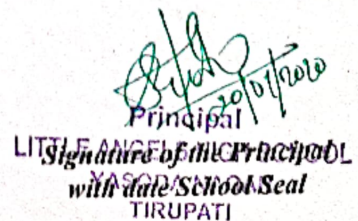 20/01/2020
Principal
LITTLE ANGELS
Signature of the Principal
with date School Seal
TIRUPATI